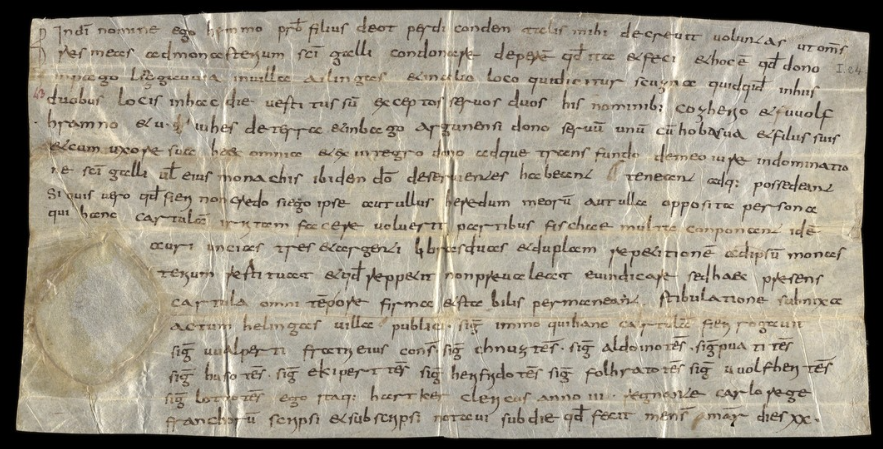 In dī nomine ego himmo prb filius deot perdi conden talis mihi decrevit voluntas ut omīs
res meas ad monasterium scī galli condonare deperē qd ita et feci et hoc ē qd dono
in pago in villa ailingas et in alio loco qui dicitur scuzna quidquid in his
duobus locis in hac die vestitus sū exceptos servos duos his nominib: cozhero et uuolf
hramno et iuhes de terra et in pago argunensi dono servū unū cū hoba sua et filiis suis
et cum uxore sua haec omnia et ex integro dono adque trans fundo de meo iure in dominatio
ne scī galli ul eius monachis ibidem dō deservientes habeant teneant adq: possedeant
Si quis vero qd fieri non credo si ego ipse aut ullus heredum meorū aut ulla opposita persona
qui hanc cartulā irritam facere voluerit partibus fischae multa conponant idē
auri uncias tres et argenti libras duas et duplam repetitionē ad ipsū monas
terium restituat et qd repperit non prevaleat euindicare sed haec presens
cartula omni tēpore firma et stabilis permaneat stibulatione subnixa
actum helingas villa publici · sig immo qui hanc cartulā fieri rogavit
sig uualperti fratri eius cons sig chnuz tēs · sig aldoino tēs · sig puati tēs
sig huso tēs · sig ekipert tēs sig herfrido tēs sig folhrato tēs sig uuolfheri tēs
sig lotto tēs ego itaq: hartker clericus anno III · regnante carlo rege
franchorū scripsi et subscripsi notavi sub die qd fecit mens mar dies xx ·
I.64